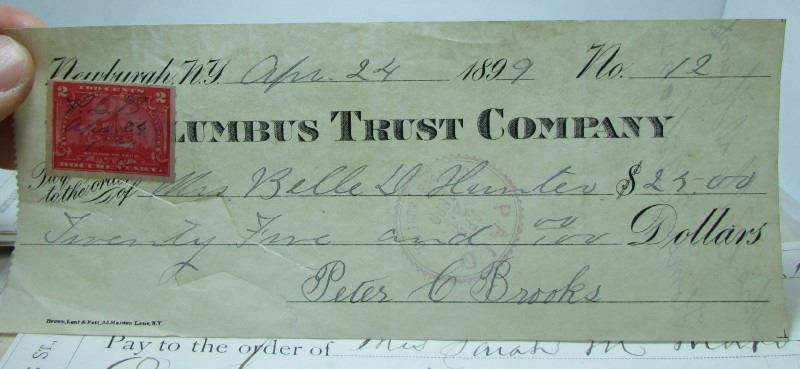 Newburgh, N.Y. Apr. 24 1899 No. 12
TWO CENTS
2 2
Apr. 24
DOCUMENTARY
LUMBUS TRUST COMPANY
Pay to the order of Mrs. Belle D. Hunter $25.00
PAID
Twenty Five and 00/100 Dollars
Peter C Brooks
Brown, Lent & Pett, 53 Maiden Lane, N.Y.
Pay to the order of Mrs Sarah M